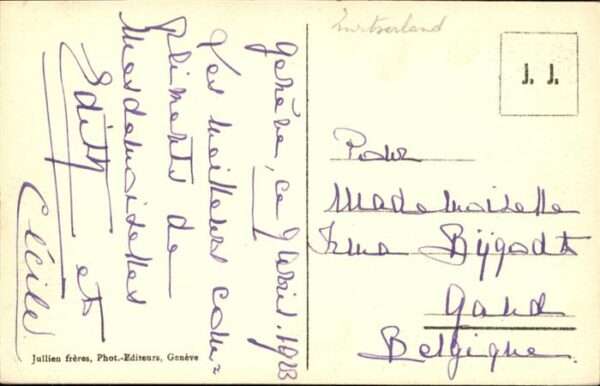 Genève, ce 9 Juin. 1913
Les meilleurs com=
pliments de
Mesdemoiselles
Edith et
Cécile
Switzerland
J. J.
Pour
Mademoiselle
Irma
Gand
Belgique
Jullien frères, Phot.-Editeurs, Genève